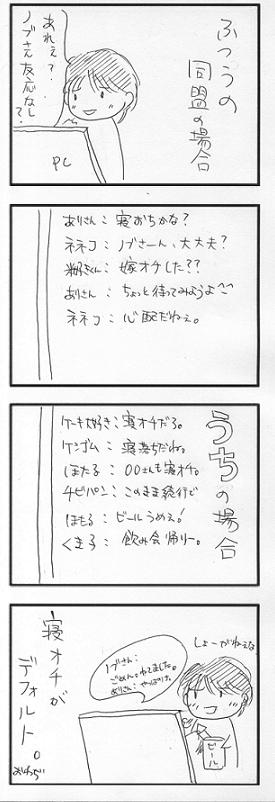 ふつうの
同盟の場合
あれぇ?
ノブさん反応なし?
PC
ありさん:寝おちかな?
ネネコ:ノブさーん、大丈夫?
嫁オチした??
ありさん:ちょっと待ってみようよ^^
ネネコ:心配だねぇ。
うちの場合
ケーキ大好き:寝オチだろ。
ケンゴム:寝落ちだね。
ほたる:〇〇さんも寝オチ。
チビパン:このまま続行で
ほたる:ビールうめぇ!
くまろ:飲み会帰りー。
寝オチが
デフォルト。
しょーがねぇな
ノブさん:
ごめん。ねてました。
ありさん:やっぱりね。
ビール